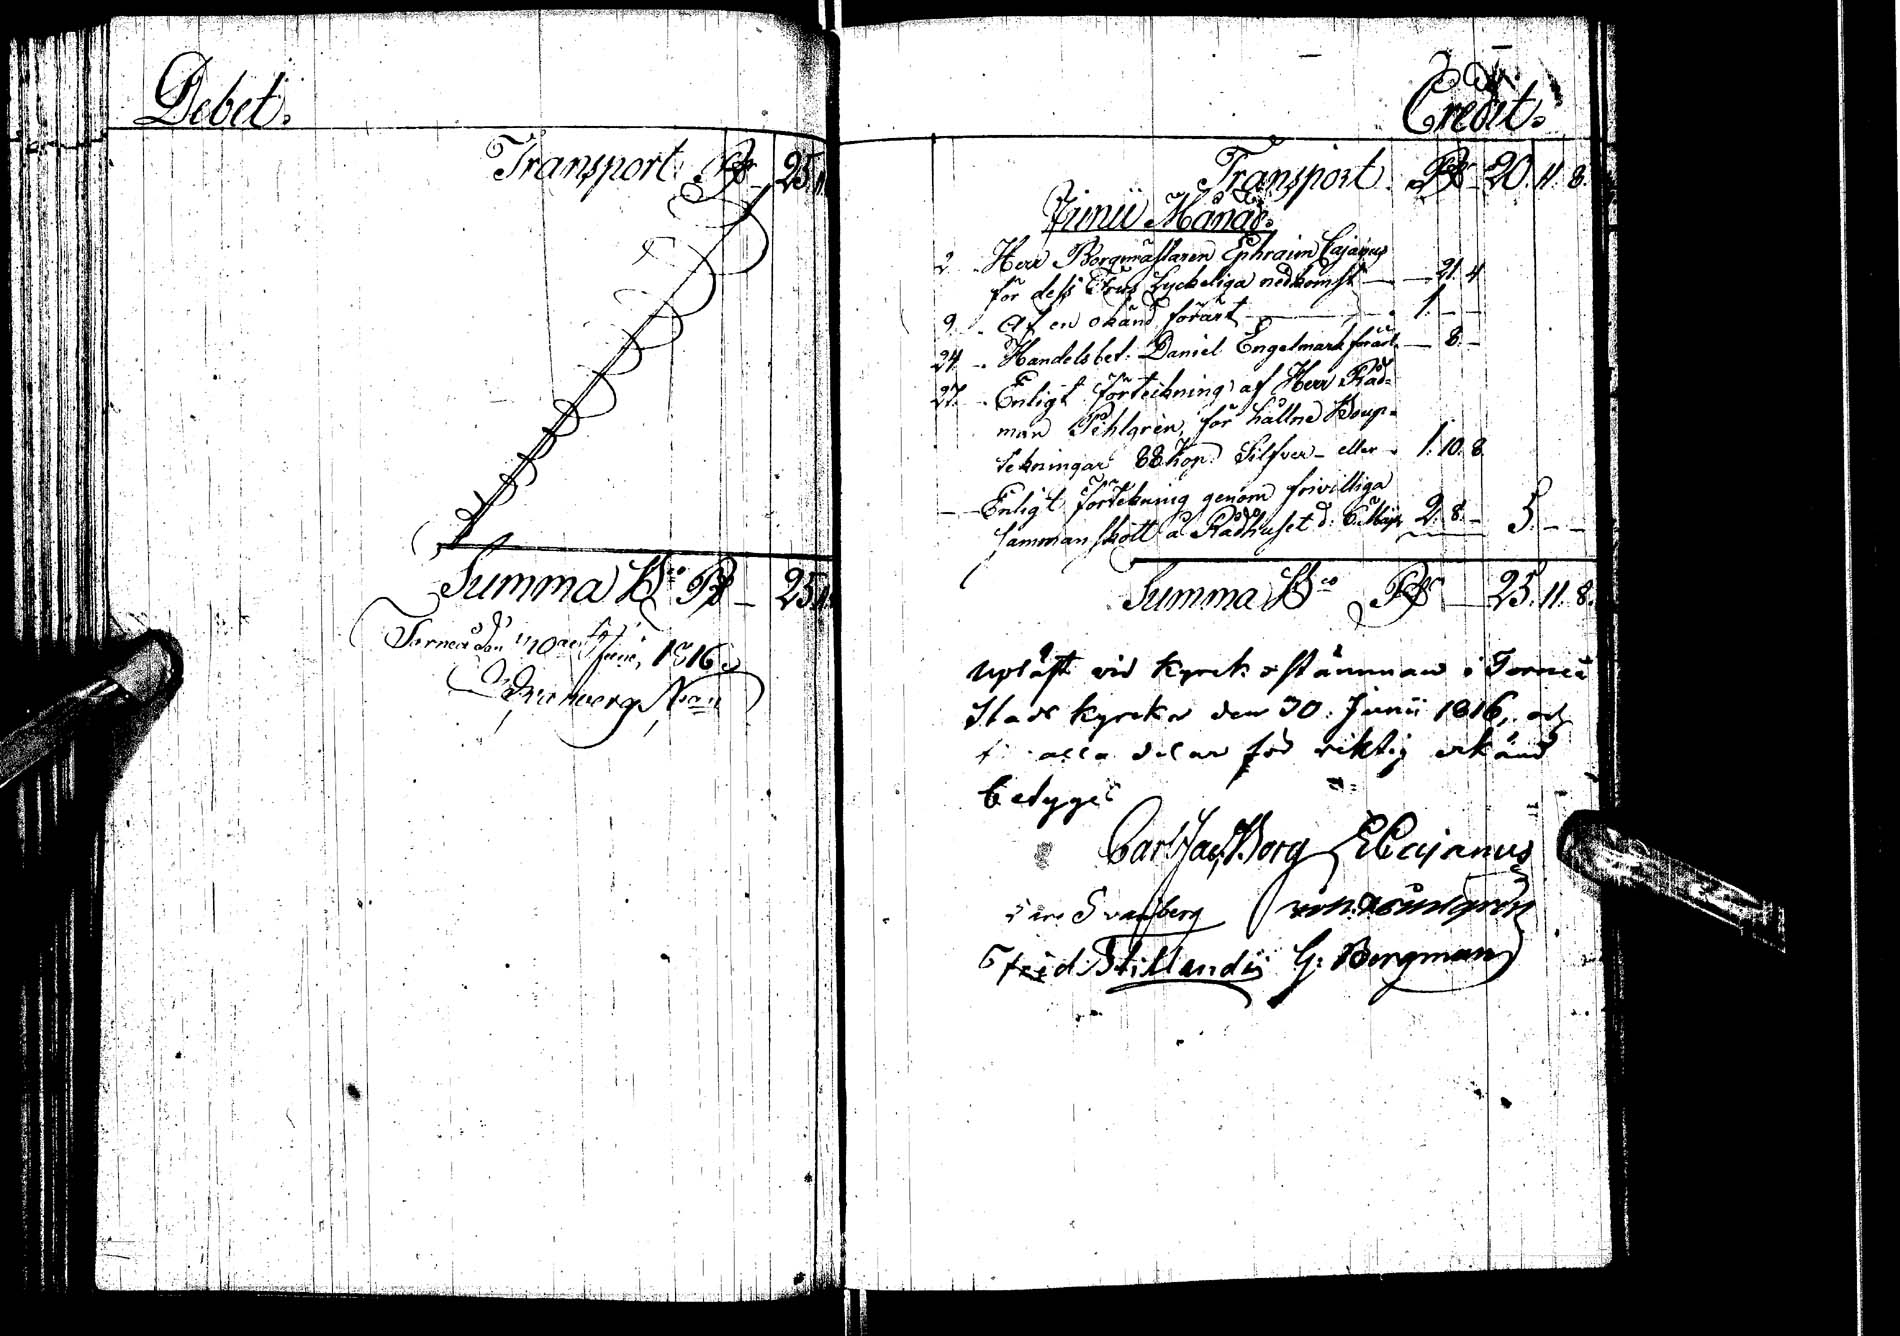 Debet.
Transport. Rd 25. 11
Summa Bco Rd 25. 11
Torneå den Junii, 1816.
Credit.
Transport. Rd 20. 11. 8.
Junii Månad.
2. Herr Borgmästaren Ephraim Cajanus
för dess Frus Lyckeliga nedkomst 21. 4
9. Af en okänd förärt 1. — —
24. Handelsbet. Daniel Engelmark förärt 8. —
27. Enligt förteckning af Herr Råd=
man Pihlgren, för hållne Boup=
tekningar 88 kop. Silfver eller 1. 10. 8
Enligt förtekning genom frivilliga
sammanskott å Rådhuset d. 6 Maji 2. 8. — 5. — —
Summa Bco Rd 25. 11. 8.
Upläst vid Kyrkostämman i Torneå
Stads kyrka den 30. Junii 1816, och
alla delar för riktig erkänd
betygar
Carl Jac. Borg E Cajanus
Svanberg
Stillandii G: Bergman